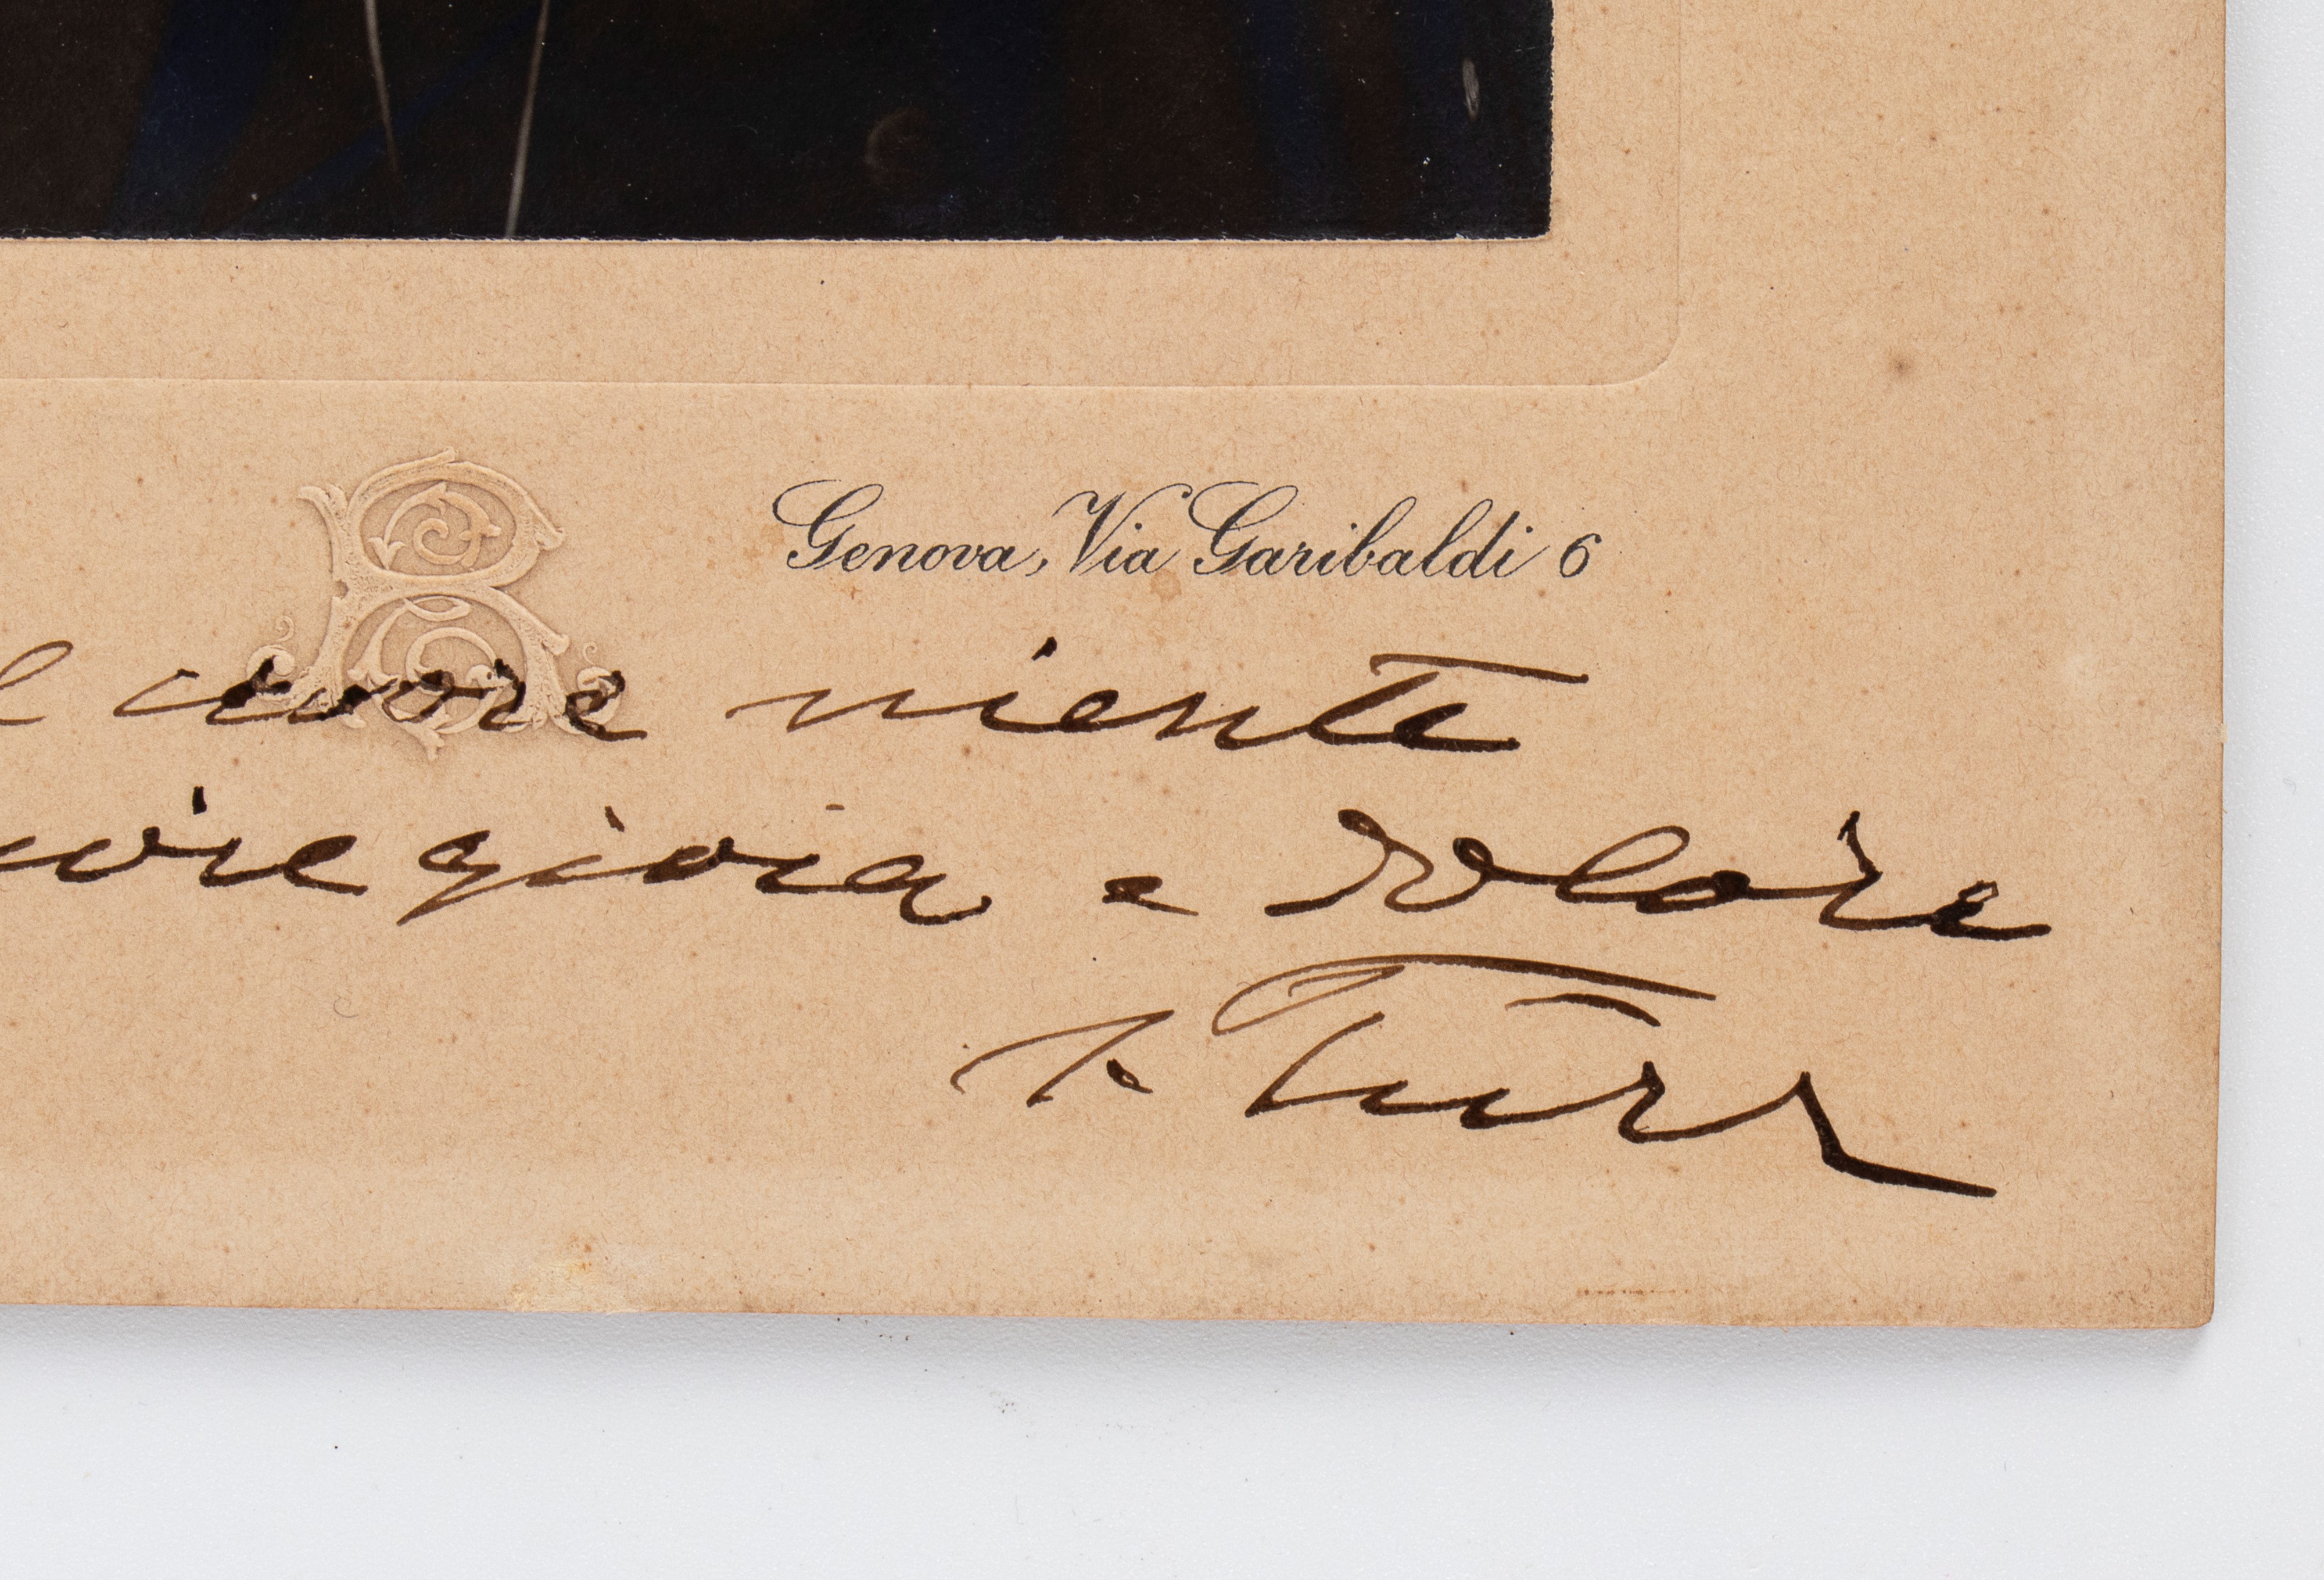 Genova, Via Garibaldi 6
cuore niente
gioia e dolore
Türr